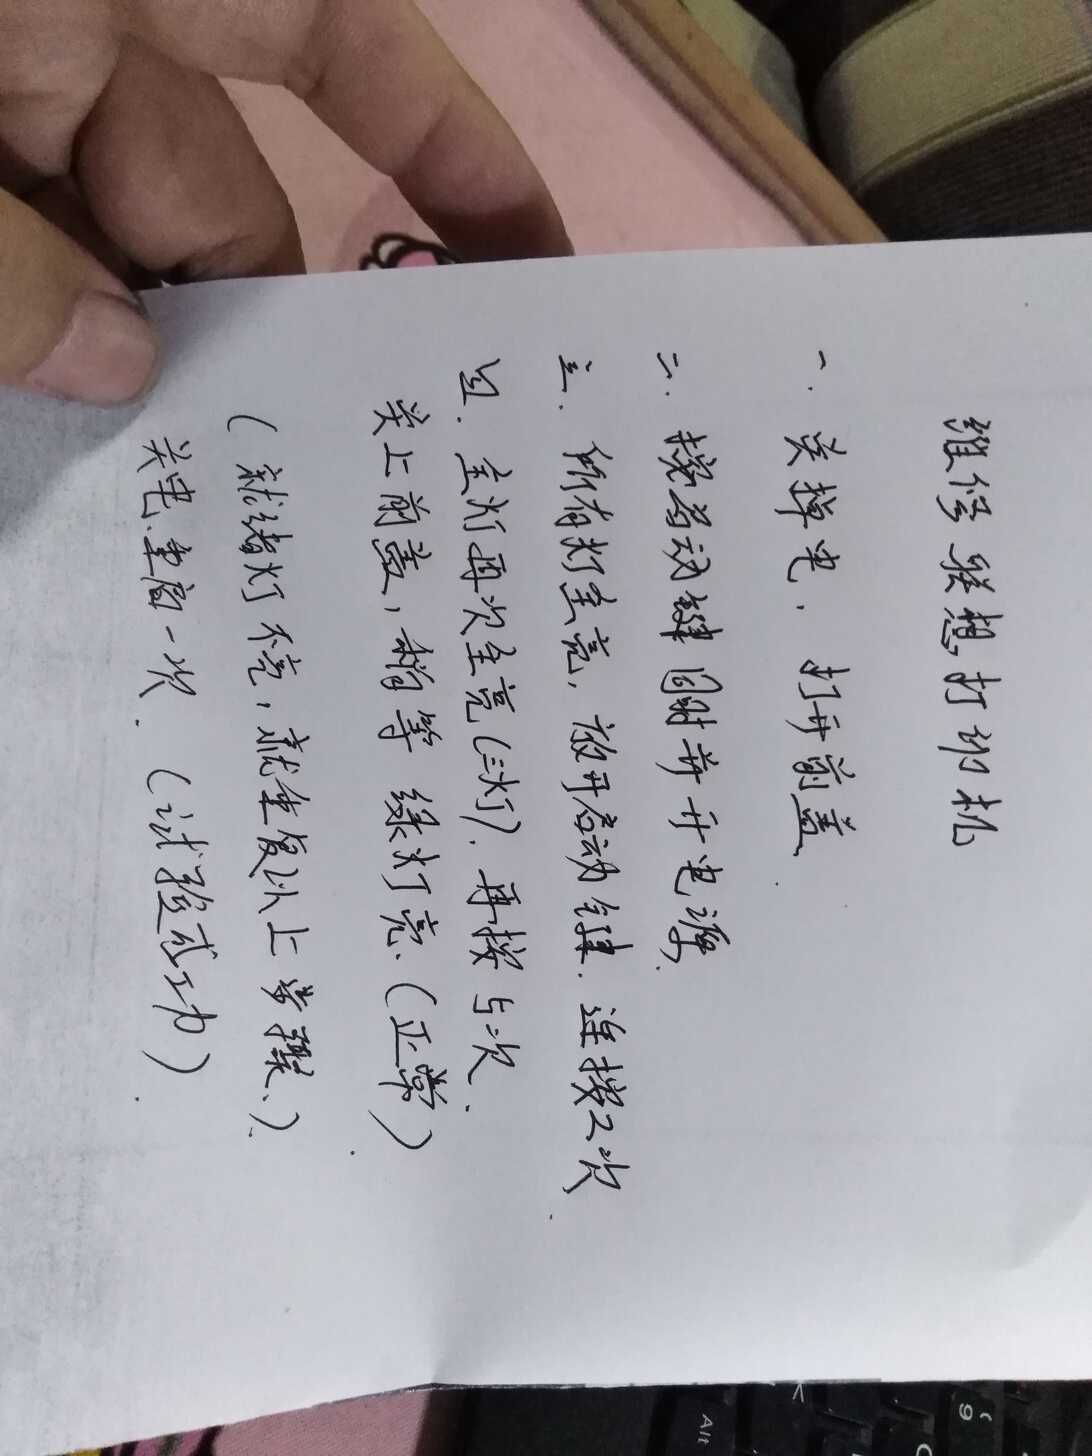 维修联想打印机
一. 关掉电. 打开前盖.
二. 按启动键同时并开电源.
三. 所有灯全亮, 放开启动键. 连按2次.
四. 全灯再次全亮(三灯). 再按5次.
关上前盖, 稍等 绿灯亮. (正常).
(就绪灯不亮, 就重复以上步骤.).
关电.重启一次. (试验成功).
Alt
9